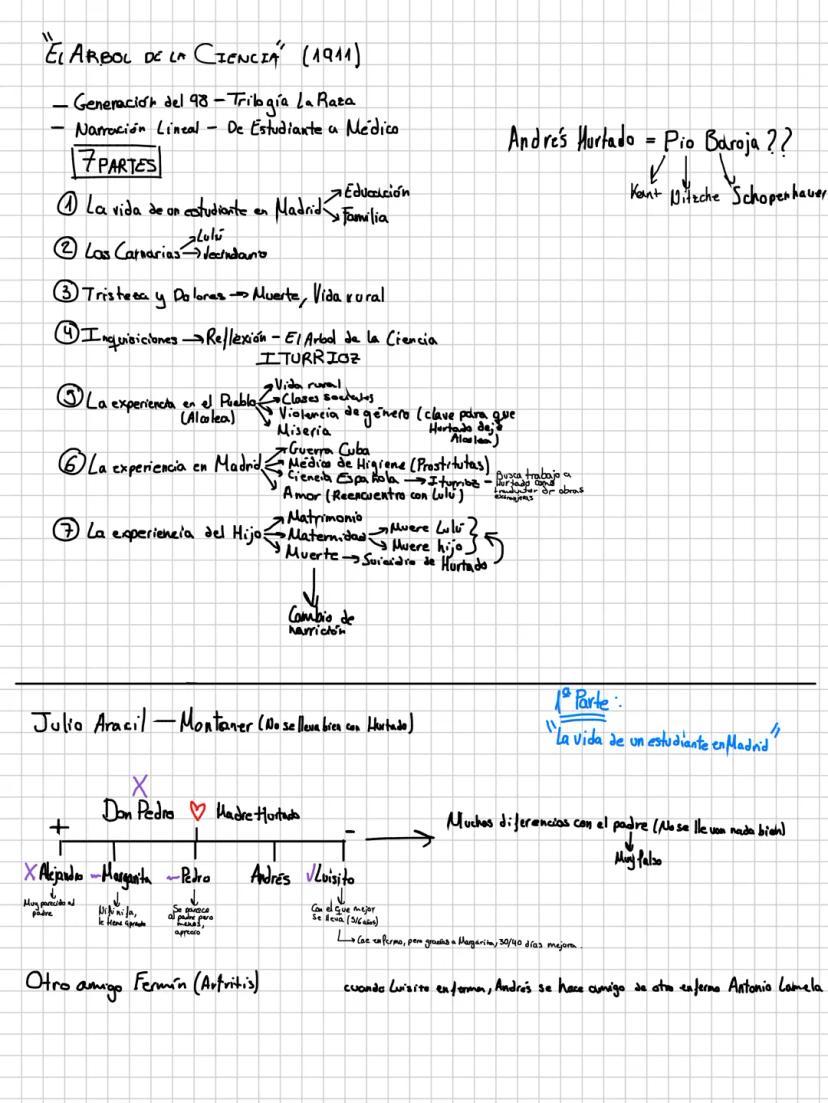 "El Arbol de la Ciencia" (1911)
- Generación del 98 - Trilogía La Raza
- Narración Lineal - De Estudiante a Médico
Andrés Hurtado = Pio Baroja ??
Kant Nitzche Schopenhauer
7 PARTES
① La vida de un estudiante en Madrid → Educación
→ Familia
② Las Carnarias → Lulú
→ Vecindario
③ Tristeza y Dolores → Muerte, Vida rural
④ Inquisiciones → Reflexión - El Arbol de la Ciencia
ITURRIOZ
⑤ La experiencia en el Pueblo (Alcolea) → Vida rural
→ Clases sociales
→ Violencia de género (clave para que Hurtado deje Alcolea)
→ Miseria
⑥ La experiencia en Madrid → Guerra Cuba
→ Médico de Higiene (Prostitutas)
→ Ciencia Española → Iturrioz - Busca trabajo a Hurtado como traductor de obras
→ Amor (Reencuentro con Lulú)
⑦ La experiencia del Hijo → Matrimonio
→ Maternidad → Muere Lulú
→ Muere hijo
→ Muerte → Suicidio de Hurtado
Cambio de
narrición
1ª Parte:
"La vida de un estudiante en Madrid"
Julio Aracil - Montaner (No se lleva bien con Hurtado)
X
Don Pedro ♡ Madre Hurtado
+ -
X Alejandro ~Margarita ~Pedro Andrés √Luisito
Muy parecido al
padre
le tiene aprecio
Se parece
al padre pero
menos,
aprecio
Con el que mejor
se lleva (5/6 años)
→ Cae enfermo, pero gracias a Margarita, 30/40 días mejora.
→ Muchas diferencias con el padre (No se llevan nada bien)
Muy falso
Otro amigo Fermín (Artritis)
cuando Luisito enferma, Andrés se hace amigo de otro enfermo Antonio Lamela